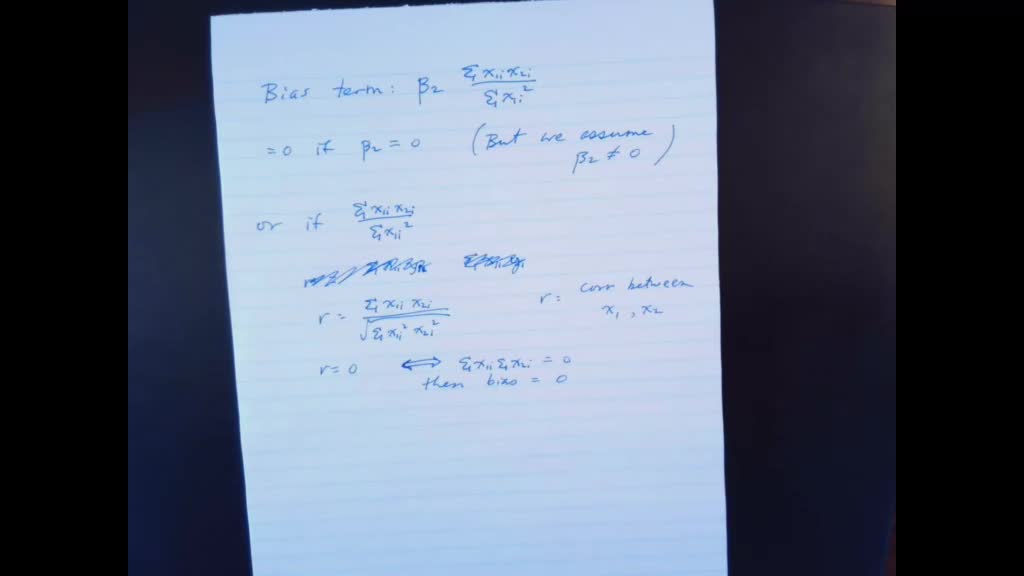 Bias term: β₂ Σx₁ᵢx₂ᵢ / Σx₁ᵢ²
= 0 if β₂ = 0 (But we assume
β₂ ≠ 0)
or if Σx₁ᵢx₂ᵢ / Σx₁ᵢ²
r = Σx₁ᵢx₂ᵢ / √Σx₁ᵢ²x₂ᵢ² r = corr between
x₁, x₂
r = 0 ⟺ Σx₁ᵢΣx₂ᵢ = 0
then bias = 0